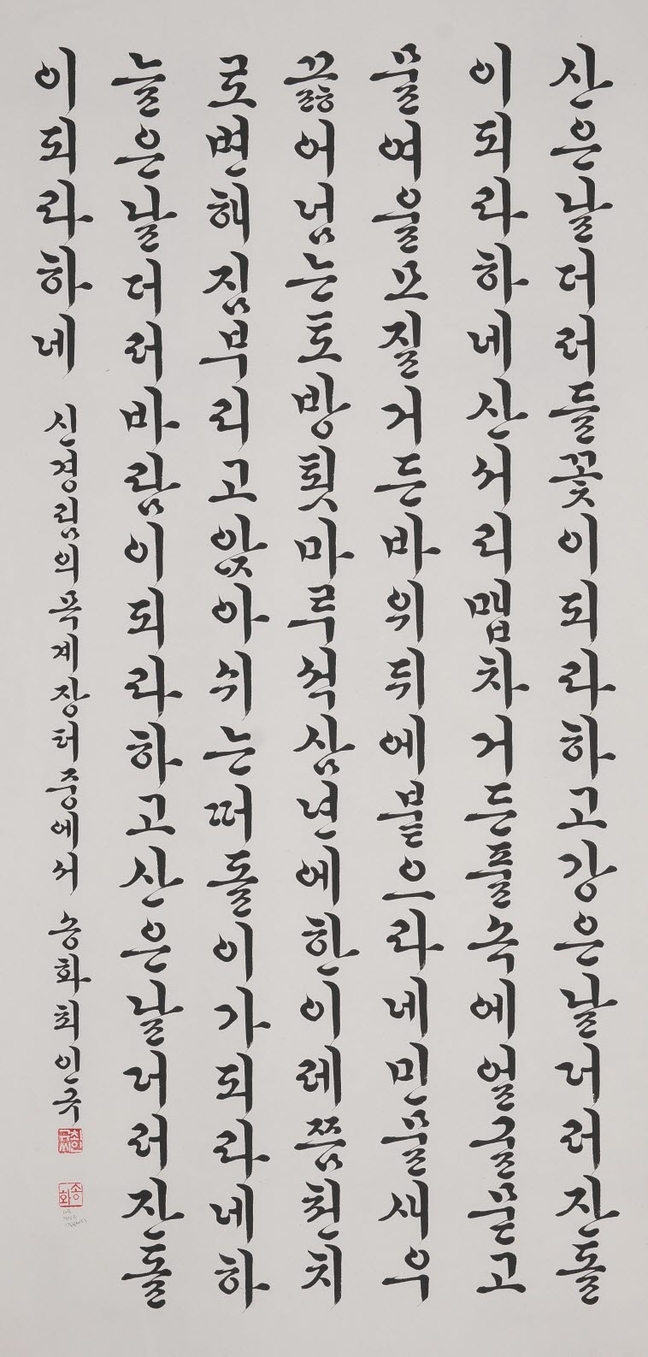 산은날더러들꽃이되라하고강은날더러잔돌
이되라하네산서리맵차거든풀속에얼굴묻고
물여울모질거든바위뒤에붙으라네민물새우
끓어넘는토방툇마루석삼년에한이레쯤천치
로변해짐부리고앉아쉬는떠돌이가되라네하
늘은날더러바람이되라하고산은날더러잔돌
이되라하네 신경림의목계장터중에서 송화최인국
송화